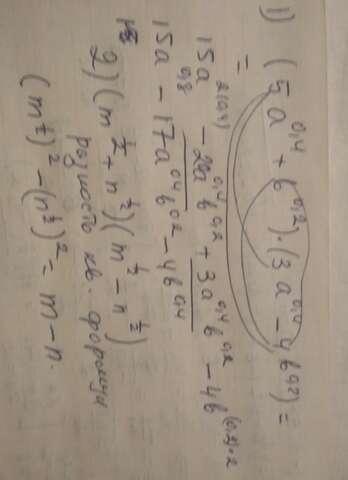 1) (5a^0,4 + b^0,2)·(3a^0,4 − 4b^0,2) =
=
15a^2(0,4) − 20a^0,4 b^0,2 + 3a^0,4 b^0,2 − 4b^(0,2)·2
15a^0,8 − 17a^0,4 b^0,2 − 4b^0,4
2) (m^1/2 + n^1/2)(m^1/2 − n^1/2)
разность кв. формула
(m^1/2)^2 − (n^1/2)^2 = m − n.